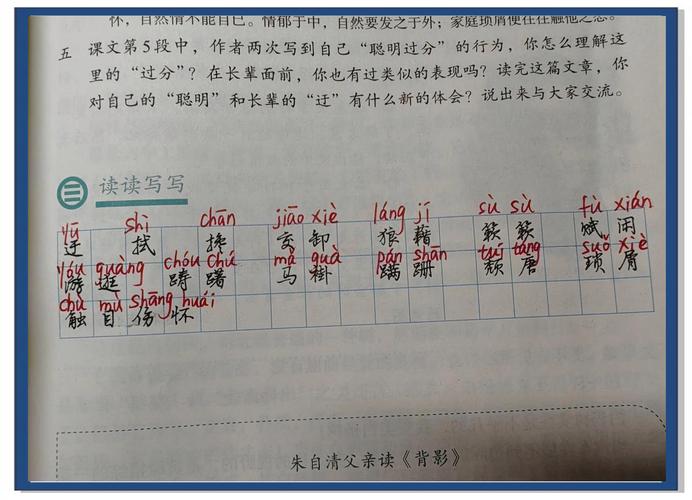 怀，自然情不能自已。情郁于中，自然要发之于外；家庭琐屑便往往触他之怒。
五 课文第5段中，作者两次写到自己“聪明过分”的行为，你怎么理解这
里的“过分”？在长辈面前，你也有过类似的表现吗？读完这篇文章，你
对自己的“聪明”和长辈的“迂”有什么新的体会？说出来与大家交流。
三 读读写写
yū shì chān jiāo xiè láng jí sù sù fù xián
迂 拭 搀 交卸 狼藉 簌簌 赋闲
yóu guàng chóu chú mǎ guà pán shān tuí táng suǒ xiè
游逛 踌躇 马褂 蹒跚 颓唐 琐屑
chù mù shāng huái
触目伤怀
朱自清父亲读《背影》